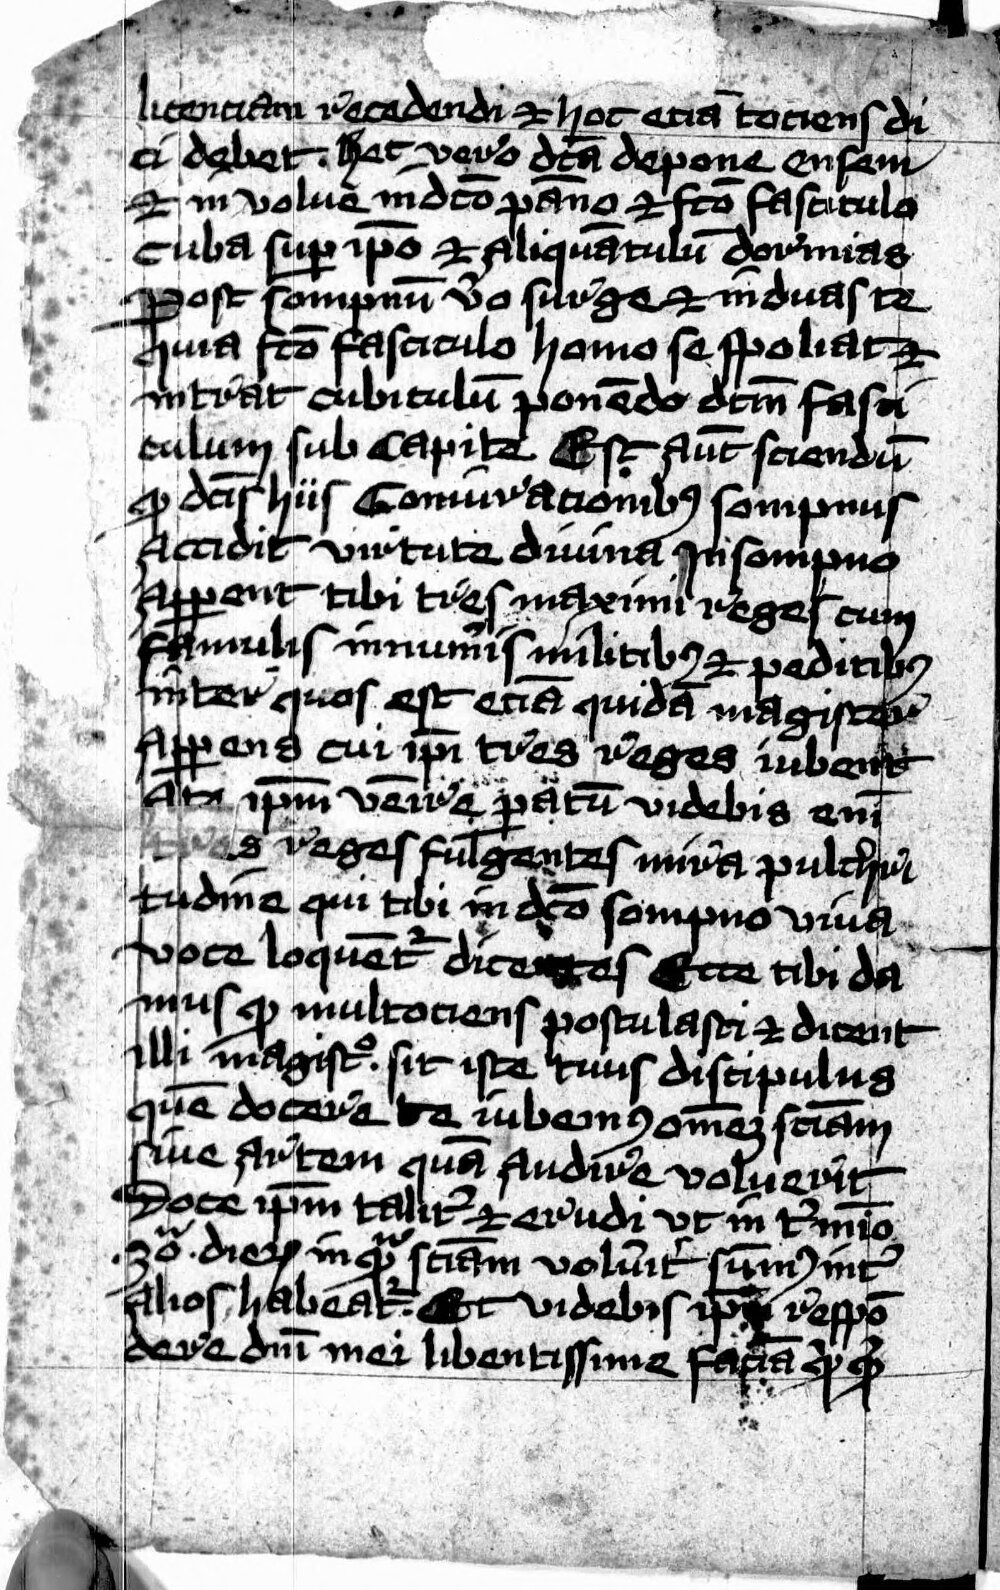 licenciam recedendi et hoc eciā tociens di
ci debet. Hec vero dc̄a depone ensem
et in volue in dc̄o pān̄o et fc̄o fasciculo
Cuba sup̱ ip̄o et aliquātulū dormias
Post sompnū v̄o surge et induas te
quia fc̄o fasciculo homo se spoliat et
intrat cubiculū ponēdo dc̄m fasci
culum sub Capite Est aūt sciendū
ꝙ dc̄is hiis Coniuracionibꝰ sompnus
Accidit virtute diuina In sompno
Apꝑent tibi tres maximi reges cum
famulis innum̄is militibꝰ et peditibꝰ
inter quos est eciā quidā magister
Apꝑens cui ip̄i tres reges iubent
ip̄m venire ꝑatū videbis enī
tres reges fulgentes mira pulchri
tudine qui tibi in dc̄o sompno viua
voce loquēt᷑ dicentes Ecce tibi da
mus ꝙ multociens postulasti et dicent
illi magist°. sit iste tuus discipulus
quē docere te iubemꝰ om̄eꝫ sciam̄
siue artem quā Audire voluerit
Doce ip̄m talit᷑ et erudi vt in t᷑mīo
dieꝝ in sciam̄ voluīt sūmꝰ int᷑
Alios habeat᷑. Et videbis ip̄m respō
dere dn̄i mei libentissime faciā